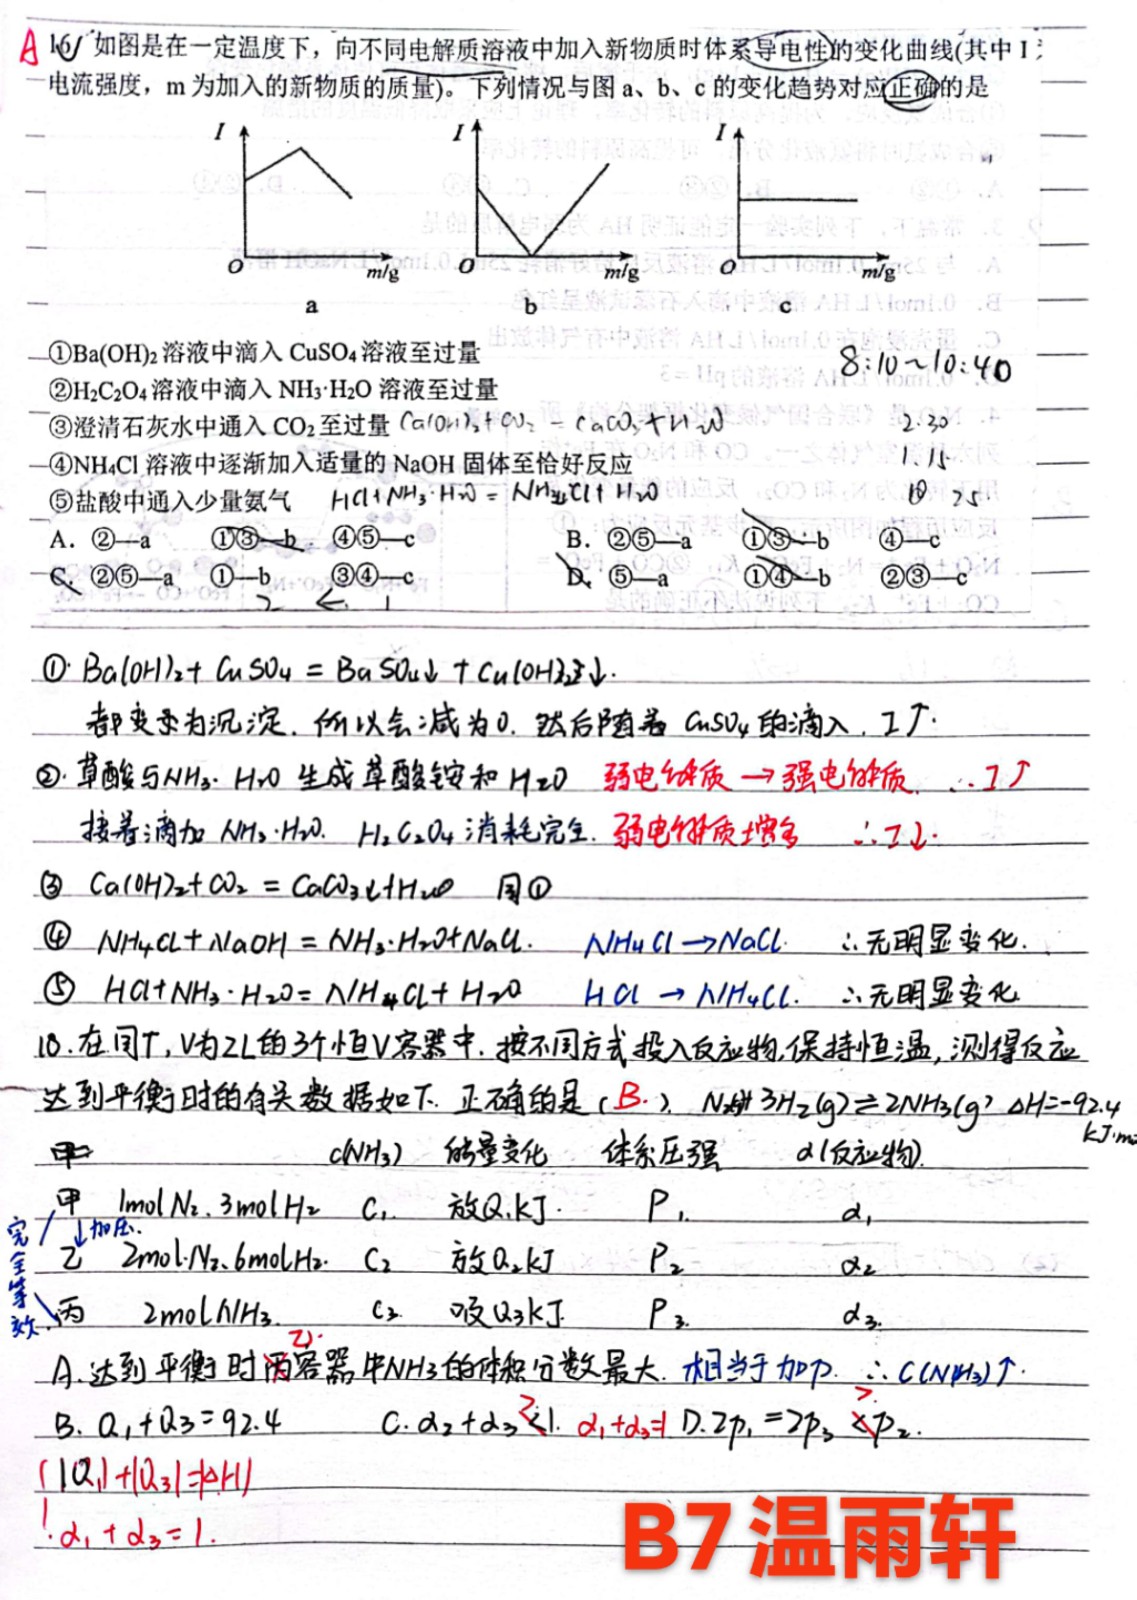 A 16、如图是在一定温度下，向不同电解质溶液中加入新物质时体系导电性的变化曲线(其中 I 为
电流强度，m 为加入的新物质的质量)。下列情况与图 a、b、c 的变化趋势对应正确的是
I I I
O m/g O m/g O m/g
a b c
①Ba(OH)₂ 溶液中滴入 CuSO₄ 溶液至过量
8:10~10:40
②H₂C₂O₄ 溶液中滴入 NH₃·H₂O 溶液至过量
③澄清石灰水中通入 CO₂ 至过量 Ca(OH)₂+CO₂ = CaCO₃+H₂O 2.30
④NH₄Cl 溶液中逐渐加入适量的 NaOH 固体至恰好反应 1.15
⑤盐酸中通入少量氨气 HCl+NH₃·H₂O = NH₄Cl+H₂O 25
A. ②—a ①③—b ④⑤—c B. ②⑤—a ①③—b ④—c
C. ②⑤—a ①—b ③④—c D. ⑤—a ①④—b ②③—c
2 ← 1
①. Ba(OH)₂+CuSO₄ = BaSO₄↓+Cu(OH)₂↓.
都变为沉淀. 所以会减为0. 然后随着 CuSO₄ 的滴入. I↑.
②. 草酸与NH₃·H₂O 生成草酸铵和 H₂O 弱电解质→强电解质. ∴I↑
接着滴加 NH₃·H₂O. H₂C₂O₄ 消耗完全. 弱电解质增多 ∴I↓.
③ Ca(OH)₂+CO₂ = CaCO₃↓+H₂O 同①
④ NH₄Cl+NaOH = NH₃·H₂O+NaCl. NH₄Cl→NaCl. ∴无明显变化.
⑤ HCl+NH₃·H₂O = NH₄Cl+H₂O HCl → NH₄Cl. ∴无明显变化
18. 在同T, V为2L的3个恒V容器中. 按不同方式投入反应物,保持恒温,测得反应
达到平衡时的有关数据如下. 正确的是(B.). N₂+3H₂(g)⇌2NH₃(g) ΔH=-92.4
kJ·m
c(NH₃) 能量变化 体系压强 α(反应物).
甲 1molN₂.3molH₂ C₁. 放Q₁kJ. P₁. α₁
完全等效 ↓加压.
乙 2mol·N₂、6molH₂. C₂ 放Q₂kJ P₂ α₂
丙 2molNH₃. C₃. 吸Q₃kJ. P₃. α₃.
乙.
A.达到平衡时丙容器中NH₃的体积分数最大. 相当于加P. ∴C(NH₃)↑.
B. Q₁+Q₃=92.4 C.α₂+α₃<1. α₁+α₃=1 D.2P₁=2P₃<P₂. >
|Q₁|+|Q₃|=|ΔH|
α₁+α₃=1.
B7温雨轩